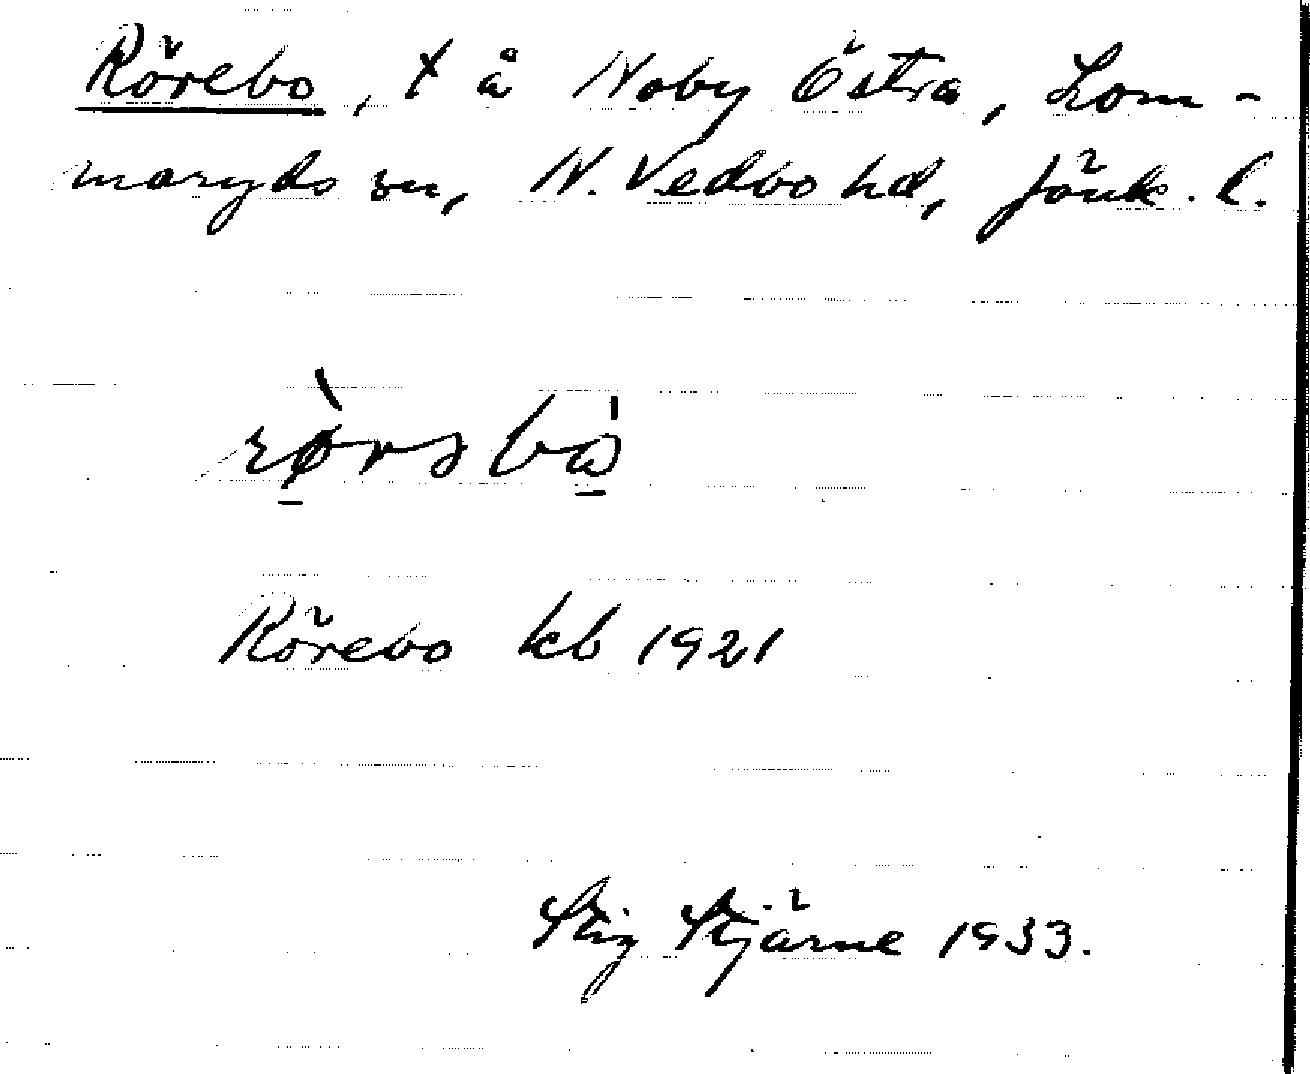 Rörebo, x å Noby Östra, Lom-
maryds sn, N. Vedbo hd, Jönk. l.
Rörebo kb 1921
Stig Stjärne 1933.